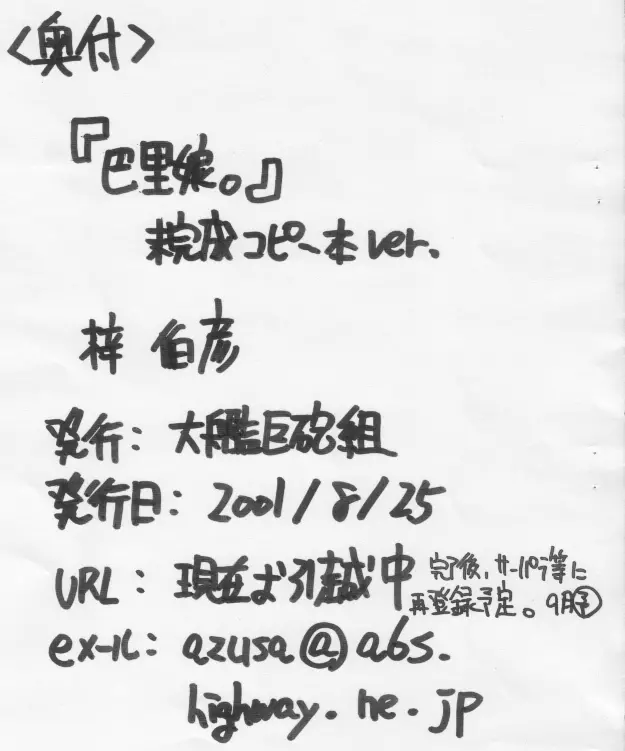 〈奥付〉
『巴里娘。』
未完成コピー本ver.
梓 伯彦
発行：大艦巨砲組
発行日：2001/8/25
URL：現在お引越中
完了後、サーパラ等に
再登録予定。9月予
eメール：azusa@abs.
highway.ne.jp